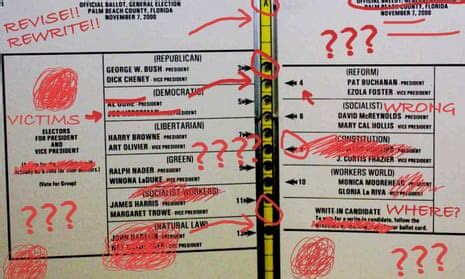 OFFICIAL BALLOT, GENERAL ELECTION
PALM BEACH COUNTY, FLORIDA
NOVEMBER 7, 2000
REVISE!!
REWRITE!!
(REPUBLICAN)
GEORGE W. BUSH PRESIDENT
DICK CHENEY VICE PRESIDENT
3
(DEMOCRATIC)
AL GORE PRESIDENT
VICE PRESIDENT
5
(LIBERTARIAN)
HARRY BROWNE PRESIDENT
ART OLIVIER VICE PRESIDENT
7
(GREEN)
RALPH NADER PRESIDENT
WINONA LaDUKE VICE PRESIDENT
(SOCIALIST WORKERS)
JAMES HARRIS PRESIDENT
MARGARET TROWE VICE PRESIDENT
11
(NATURAL LAW)
JOHN HAGELIN PRESIDENT
VICE PRESIDENT
13
VICTIMS
ELECTORS
FOR PRESIDENT
AND
VICE PRESIDENT
(Vote for Group)
???
????
A
OFFICIAL BALLOT, GENERAL ELECTION
PALM BEACH COUNTY, FLORIDA
NOVEMBER 7, 2000
???
(REFORM)
4 PAT BUCHANAN PRESIDENT
EZOLA FOSTER VICE PRESIDENT
(SOCIALIST)
WRONG
6 DAVID McREYNOLDS PRESIDENT
MARY CAL HOLLIS VICE PRESIDENT
(CONSTITUTION)
J. CURTIS FRAZIER VICE PRESIDENT
(WORKERS WORLD)
10 MONICA MOOREHEAD PRESIDENT
GLORIA La RIVA VICE PRESIDENT
WRITE-IN CANDIDATE
WHERE?
To vote for a write-in candidate, follow the
ballot card.
???